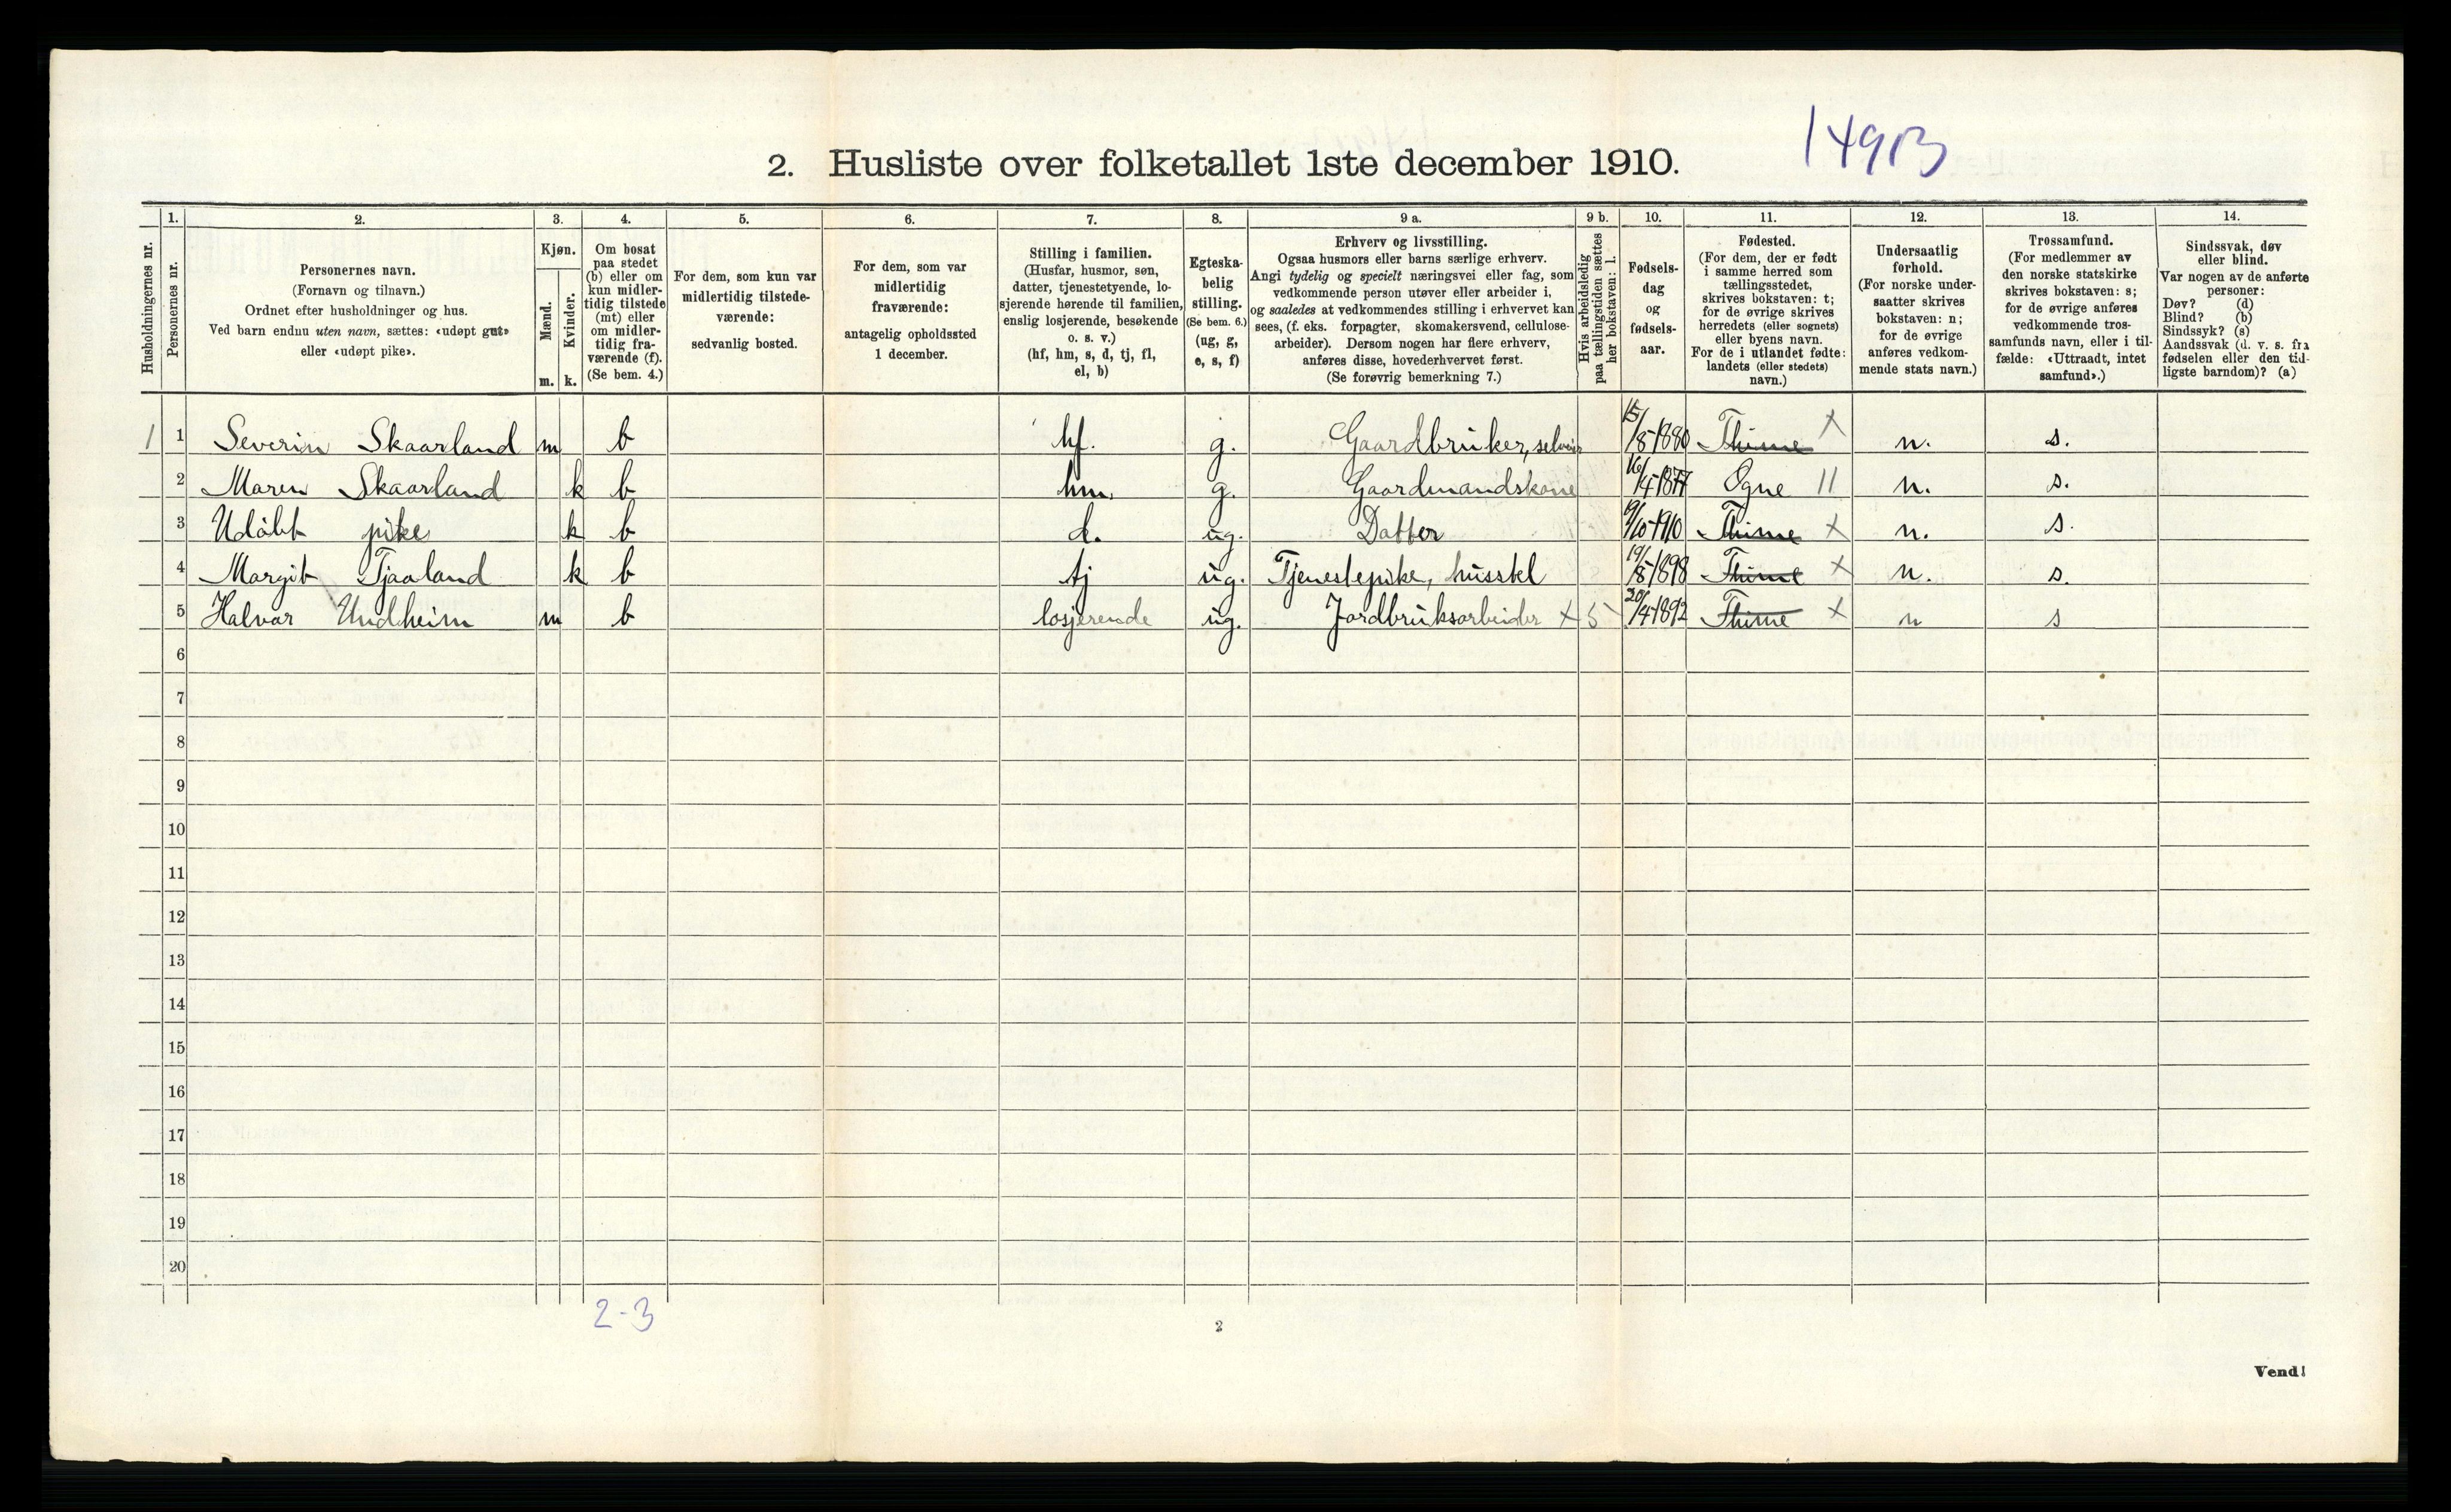 14913
2. Husliste over folketallet 1ste december 1910.
Husholdningernes nr.
1.
Personernes nr.
2.
Personernes navn.
(Fornavn og tilnavn.)
Ordnet efter husholdninger og hus.
Ved barn endnu uten navn, sættes: «udøpt gut»
eller «udøpt pike».
3.
Kjøn.
Mænd.
m.
Kvinder.
k.
4.
Om bosat
paa stedet
(b) eller om
kun midler-
tidig tilstede
(mt) eller
om midler-
tidig fra-
værende (f).
(Se bem. 4.)
5.
For dem, som kun var
midlertidig tilstede-
værende:
sedvanlig bosted.
6.
For dem, som var
midlertidig
fraværende:
antagelig opholdssted
1 december.
7.
Stilling i familien.
(Husfar, husmor, søn,
datter, tjenestetyende, lo-
sjerende hørende til familien,
enslig losjerende, besøkende
o. s. v.)
(hf, hm, s, d, tj, fl,
el, b)
8.
Egteska-
belig
stilling.
(Se bem. 6.)
(ug, g,
e, s, f)
9 a.
Erhverv og livsstilling.
Ogsaa husmors eller barns særlige erhverv.
Angi tydelig og specielt næringsvei eller fag, som
vedkommende person utøver eller arbeider i,
og saaledes at vedkommendes stilling i erhvervet kan
sees, (f. eks. forpagter, skomakersvend, cellulose-
arbeider). Dersom nogen har flere erhverv,
anføres disse, hovederhvervet først.
(Se forøvrig bemerkning 7.)
9 b.
Hvis arbeidsledig
paa tællingstiden sættes
her bokstaven: l.
10.
Fødsels-
dag
og
fødsels-
aar.
11.
Fødested.
(For dem, der er født
i samme herred som
tællingsstedet,
skrives bokstaven: t;
for de øvrige skrives
herredets (eller sognets)
eller byens navn.
For de i utlandet fødte:
landets (eller stedets)
navn.)
12.
Undersaatlig
forhold.
(For norske under-
saatter skrives
bokstaven: n;
for de øvrige
anføres vedkom-
mende stats navn.)
13.
Trossamfund.
(For medlemmer av
den norske statskirke
skrives bokstaven: s;
for de øvrige anføres
vedkommende tros-
samfunds navn, eller i til-
fælde: «Uttraadt, intet
samfund».)
14.
Sindssvak, døv
eller blind.
Var nogen av de anførte
personer:
Døv? (d)
Blind? (b)
Sindssyk? (s)
Aandssvak (d. v. s. fra
fødselen eller den tid-
ligste barndom)? (a)
1 1 Severin Skaarland m b hf. g. Gaardbruker, selveier 15/8-1880 Thime X n. s.
2 Maren Skaarland k b hm. g. Gaardmandskone 16/4-1877 Ogne 11 n. s.
3 Udöbt pike k b d. ug. Datter 9/10-1910 Thime X n. s.
4 Margit Tjaaland k b tj ug. Tjenestepike, husstel 19/8-1898 Thime X n. s.
5 Halvar Undheim m b losjerende ug. Jordbruksarbeider X 5 20/4-1892 Thime X n s
6
7
8
9
10
11
12
13
14
15
16
17
18
19
20
2-3
2
Vend!